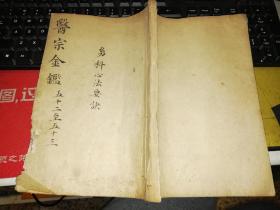 醫宗金鑑 五十二至五十三
科心法要訣